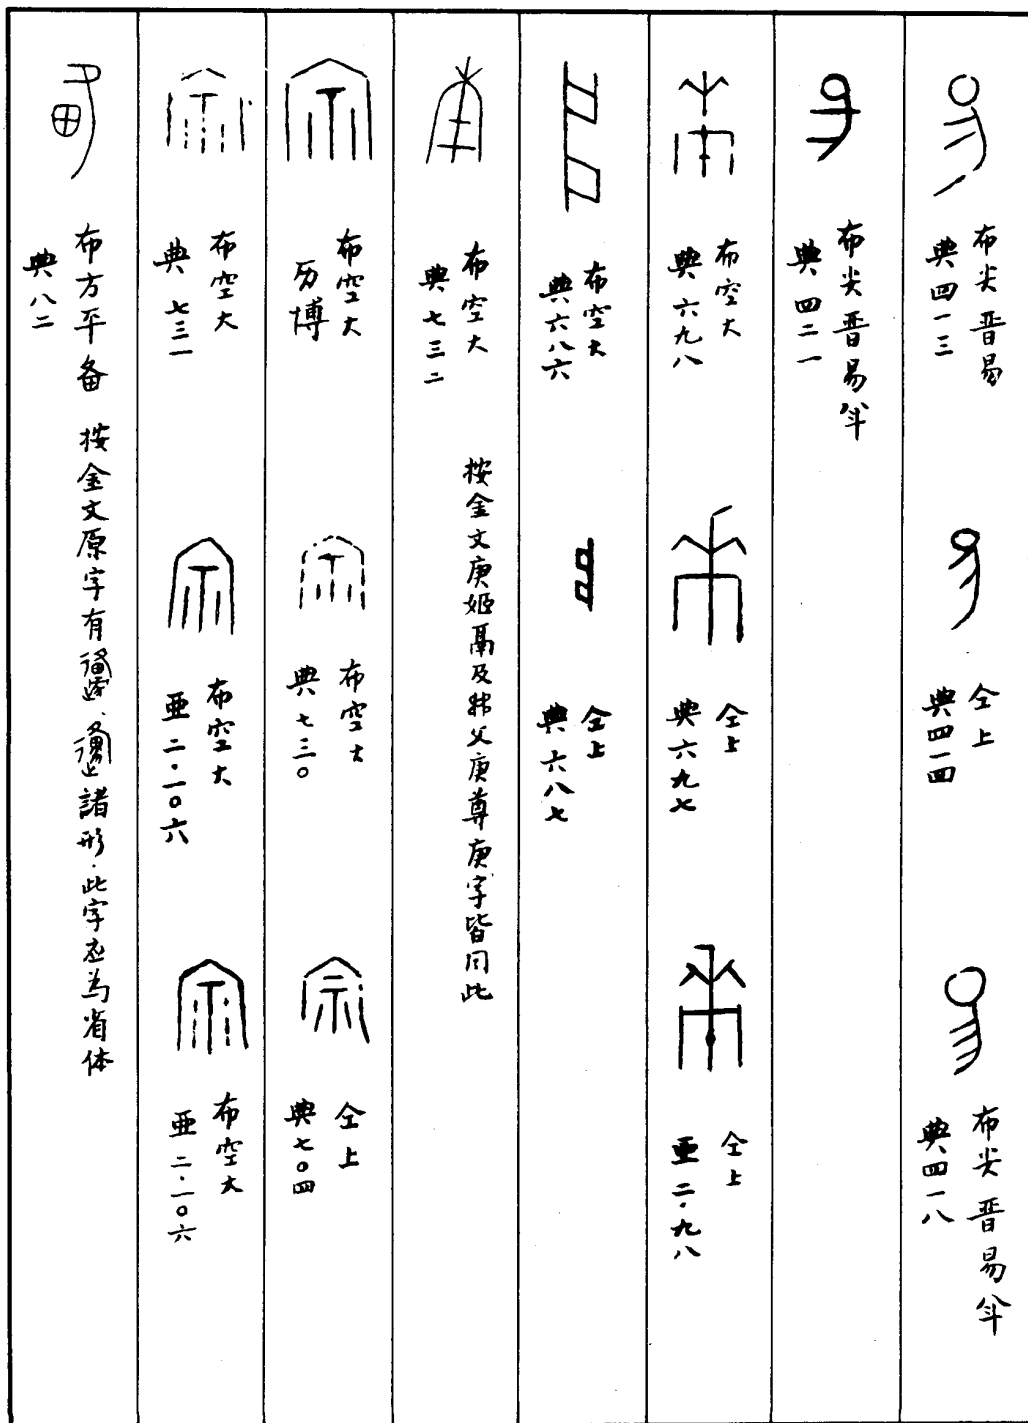 布尖晋昜
典四一三
仝上
典四一四
布尖晋昜半
典四一八
布尖晋昜半
典四二一
布空大
典六九八
仝上
典六九七
仝上
亜二·九八
布空大
典六八六
仝上
典六八七
布空大
典七三二
按金文庚姬鬲及父庚尊庚字皆同此
布空大
历博
布空大
典七三〇
仝上
典七〇四
布空大
典七三一
布空大
亜二·一〇六
布空大
亜二·一〇六
布方平备
典八二
按金文原字有、諸形·此字应为省体